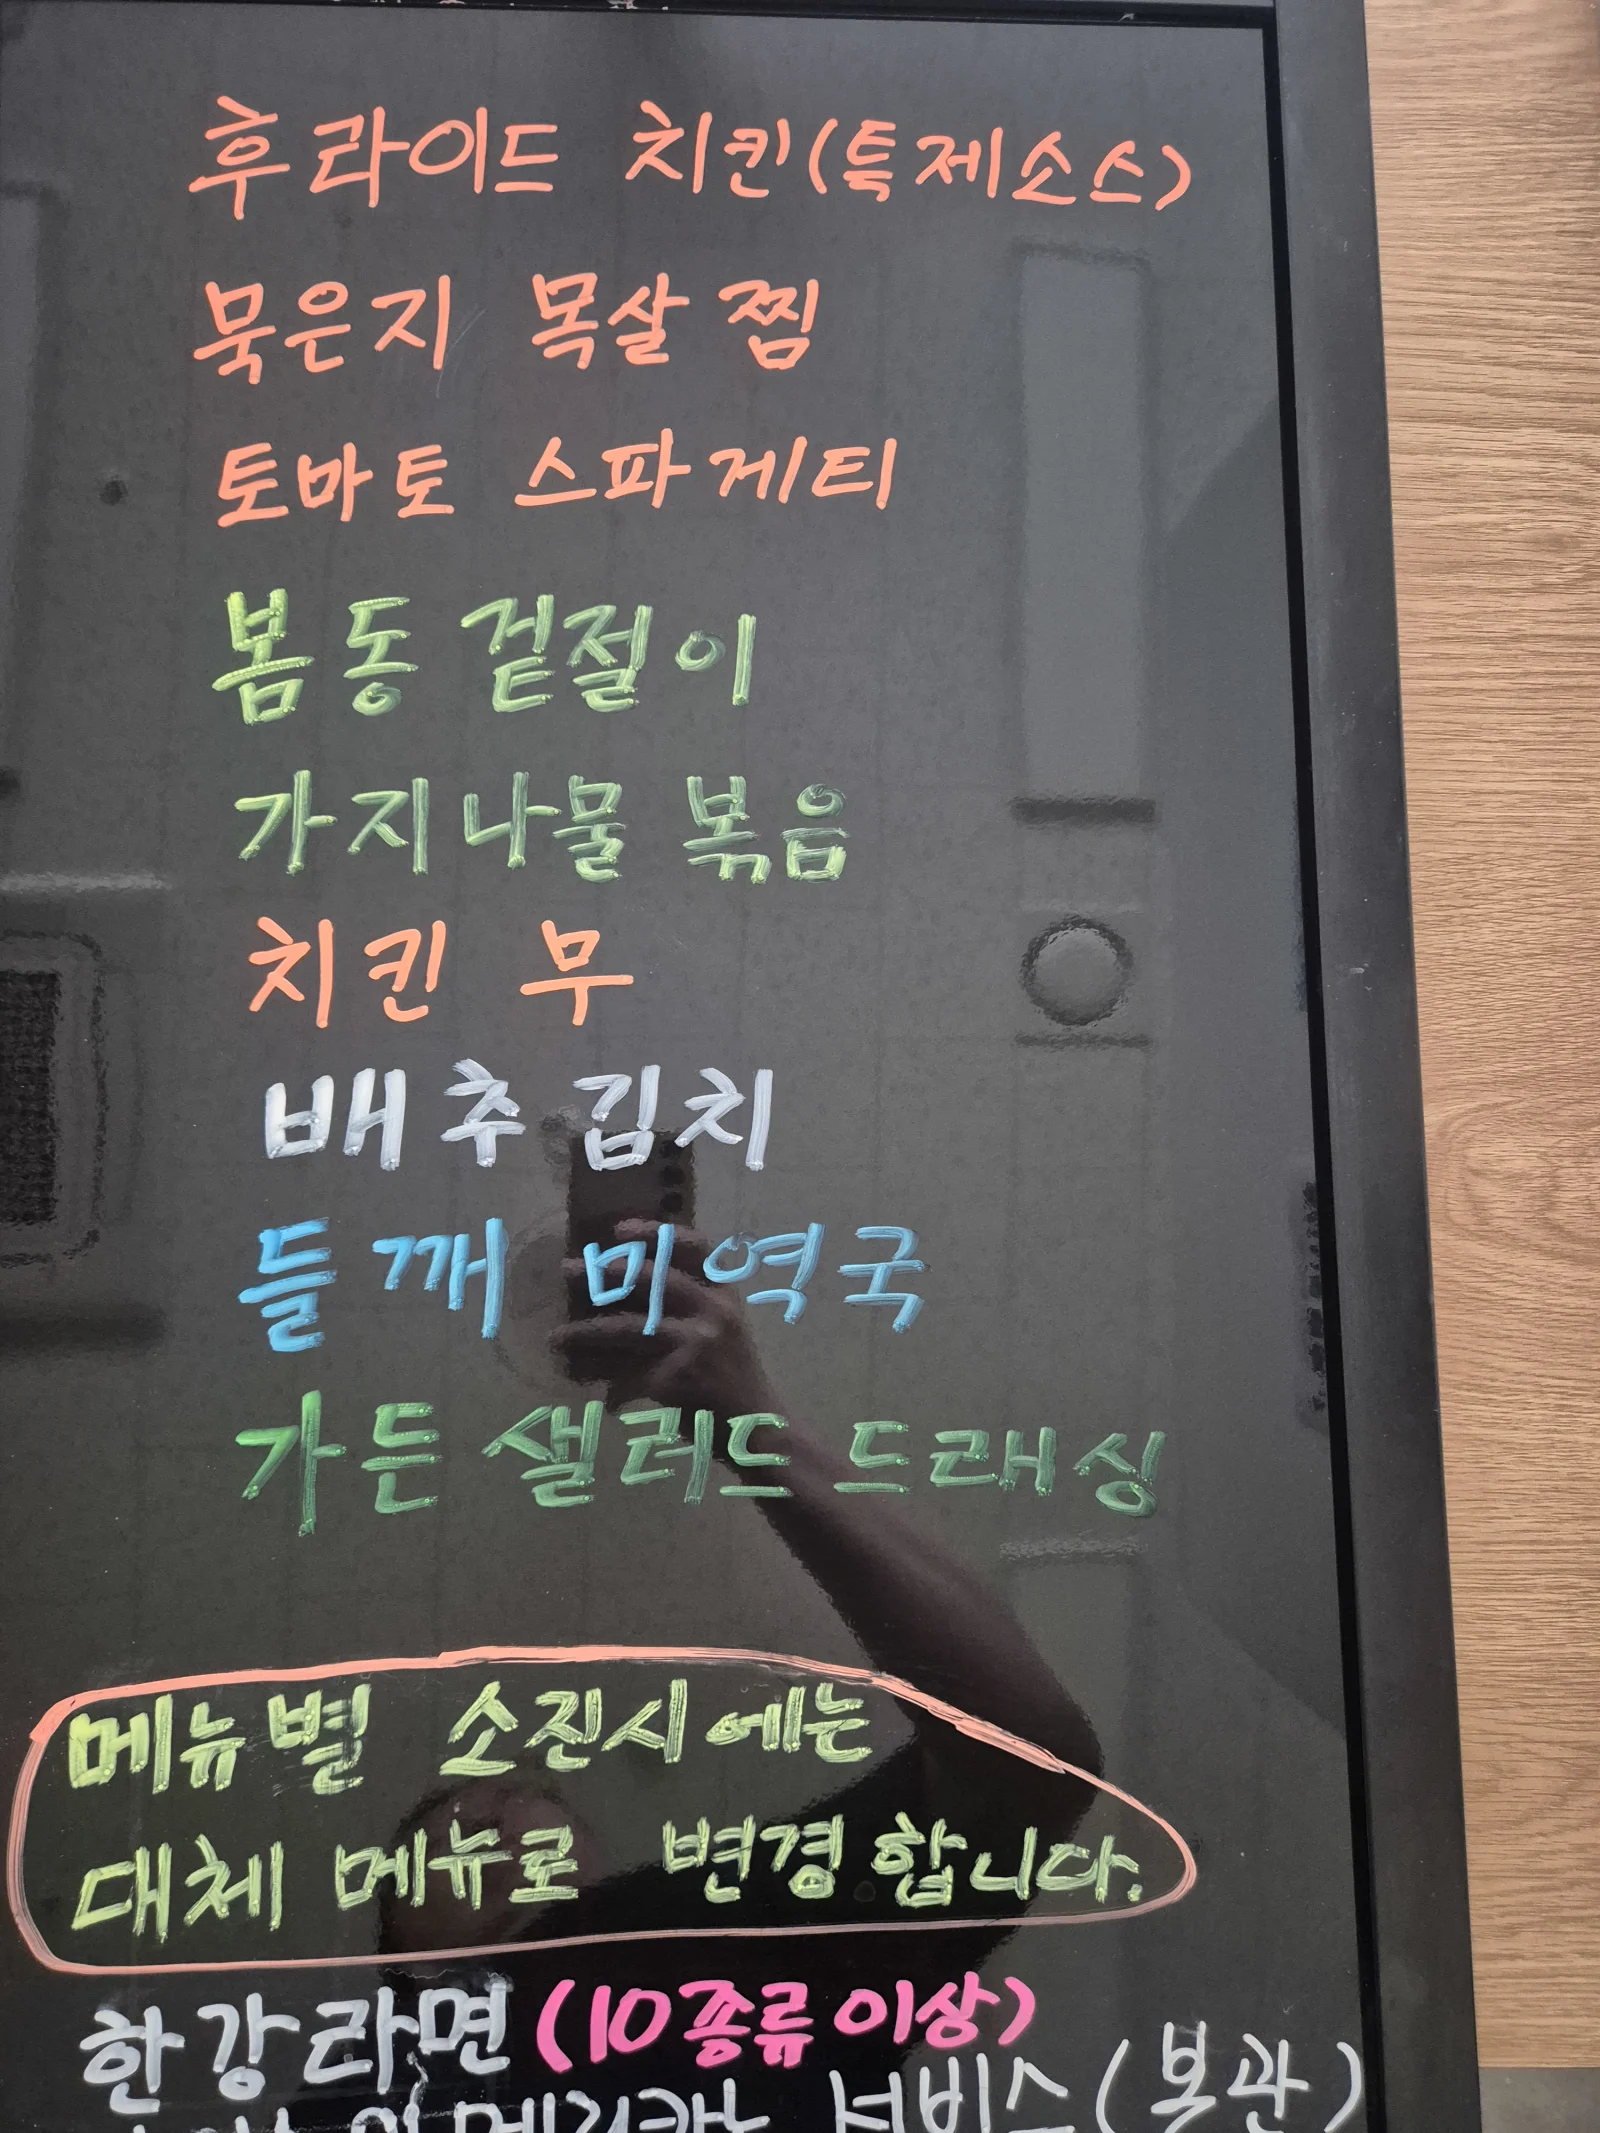 후라이드 치킨(특제소스)
묵은지 목살 찜
토마토 스파게티
봄동 겉절이
가지나물 볶음
치킨 무
배추김치
들깨 미역국
가든 샐러드 드래싱
메뉴별 소진시에는
대체 메뉴로 변경합니다.
한강라면 (10종류이상)
아메리카노 서비스(본관)